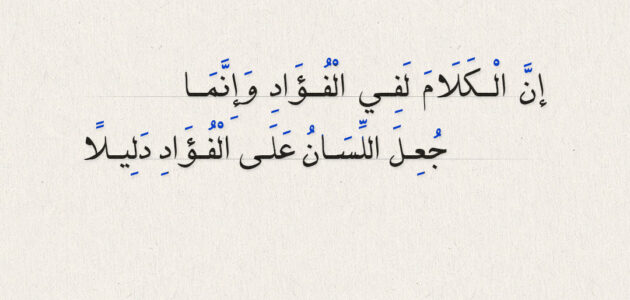 إِنَّ الْكَلَامَ لَفِي الْفُؤَادِ وَإِنَّمَا
جُعِلَ اللِّسَانُ عَلَى الْفُؤَادِ دَلِيلًا